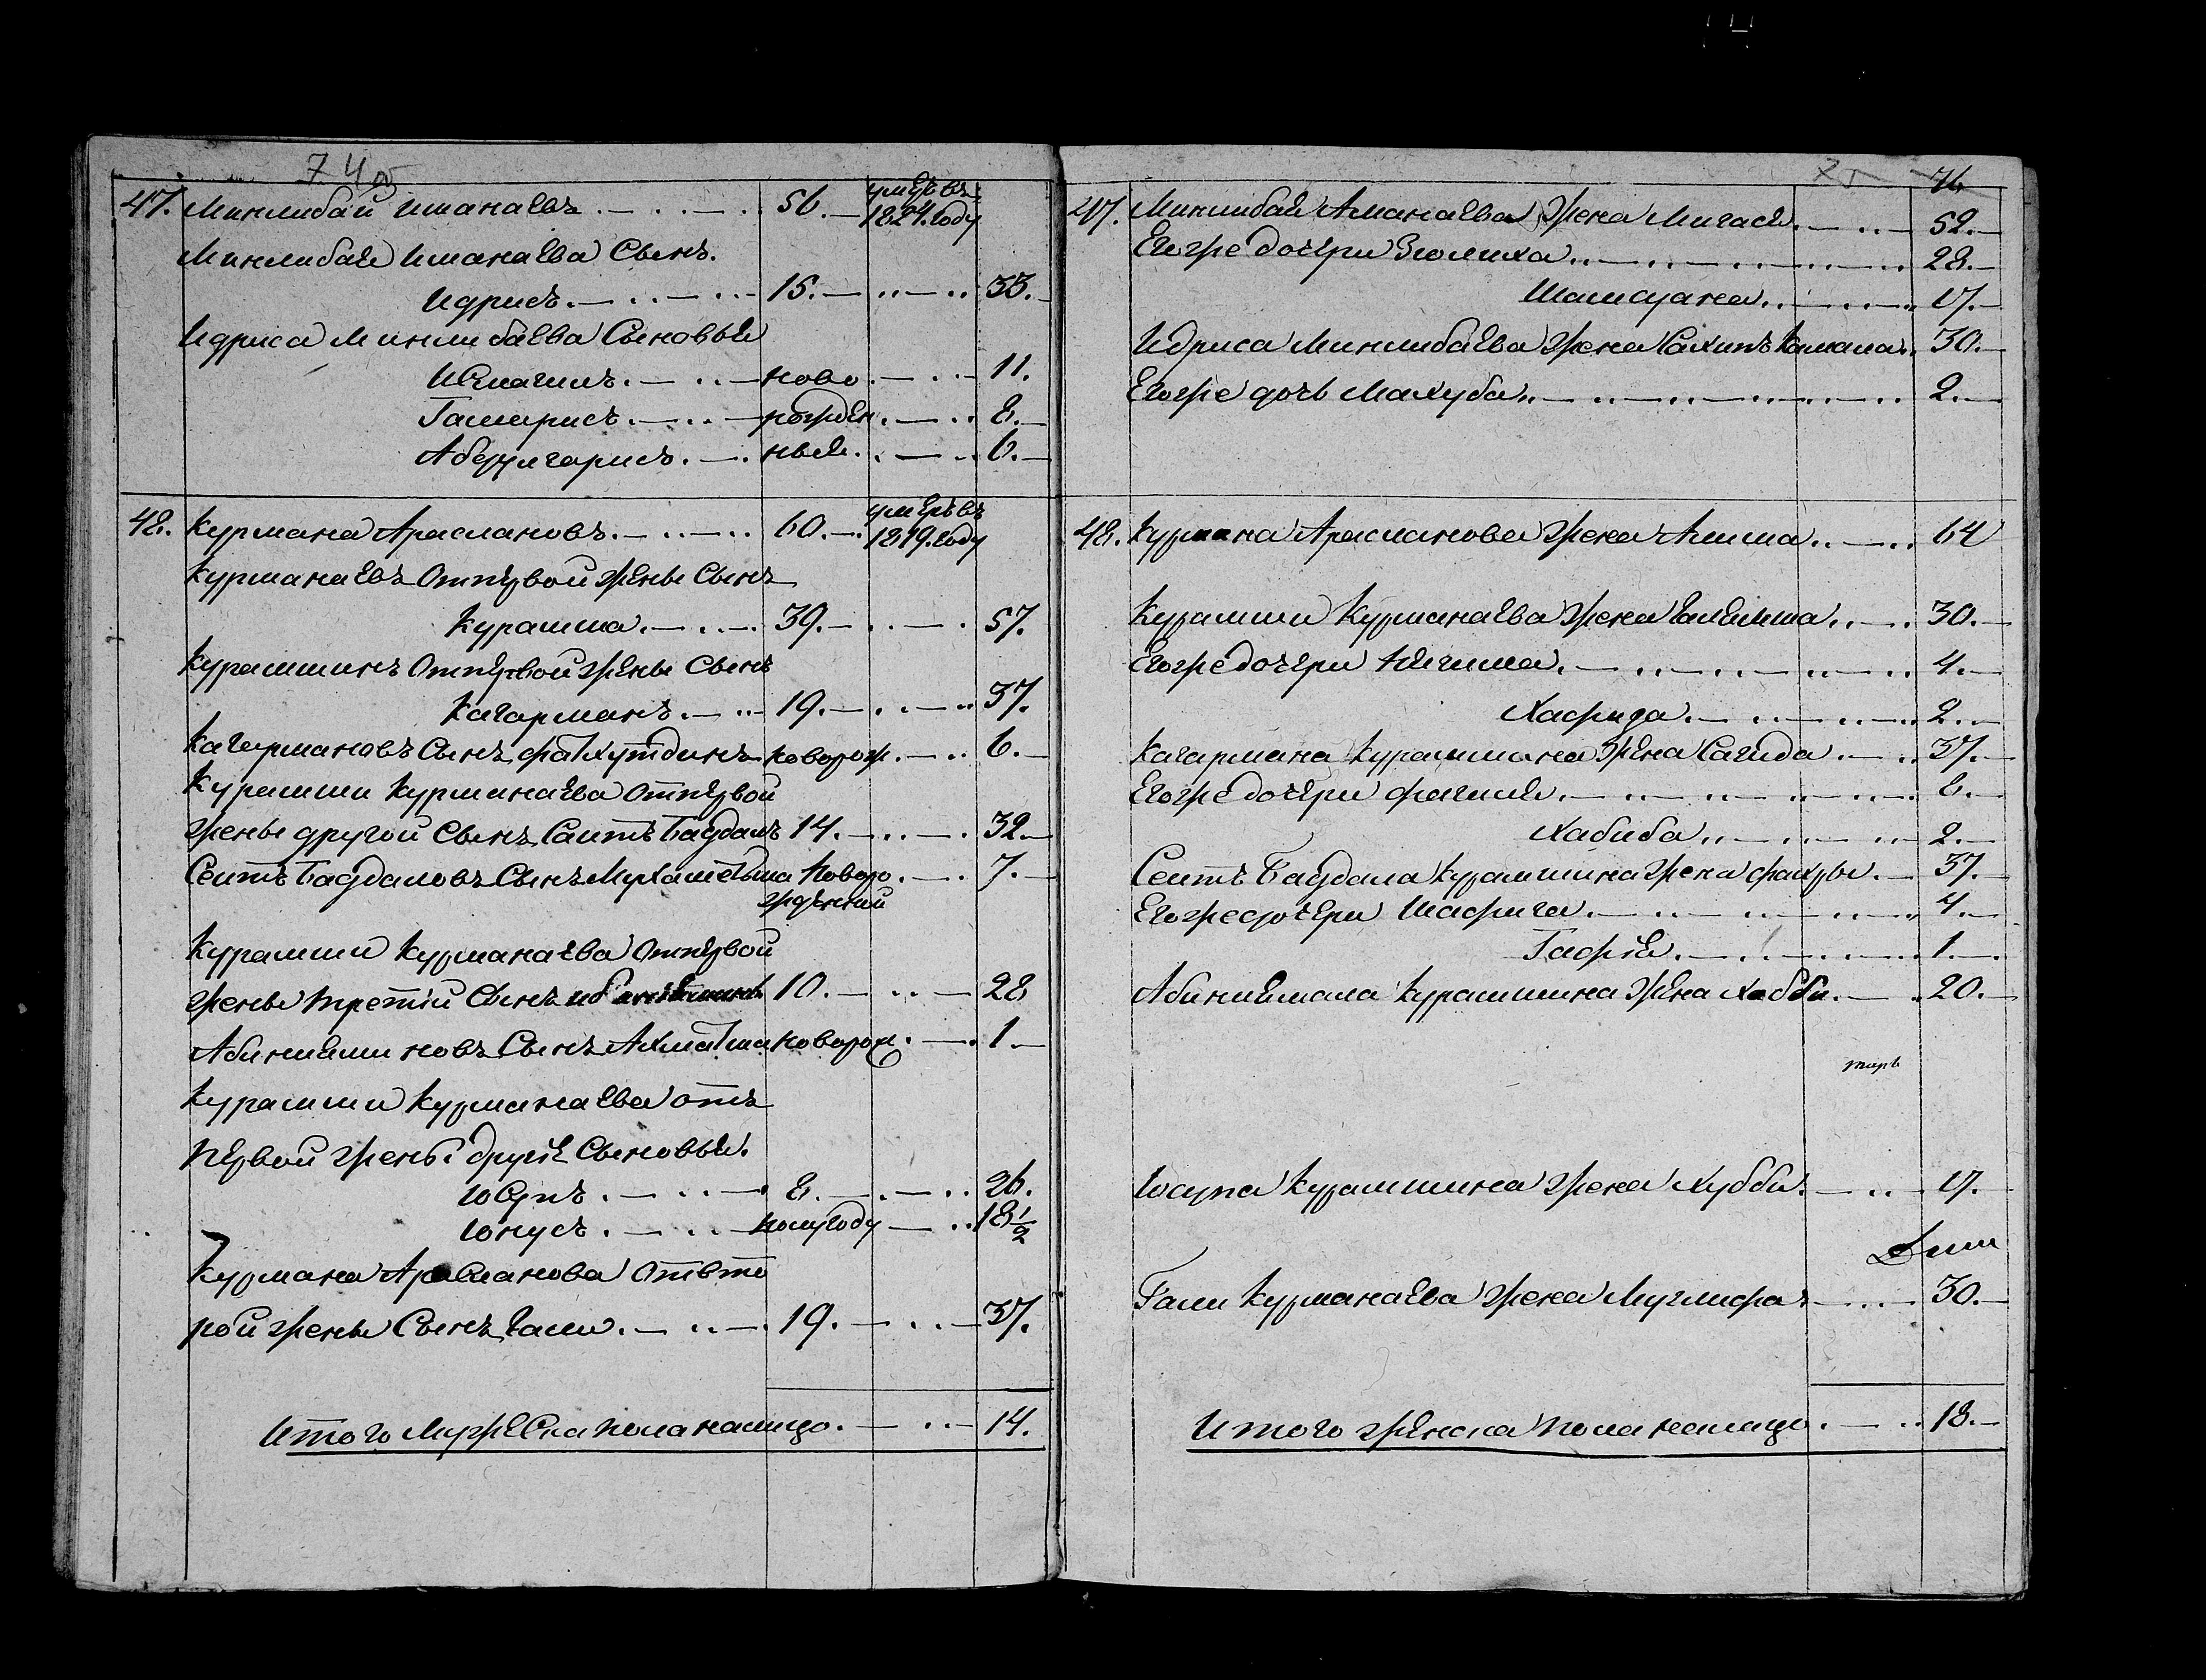 74об
47. Минлибай Иманаевъ 56. умеръ въ 1824. году
Минлибая Иманаева Сынъ.
Идрисъ 15. 33.
Идриса Минлибаева Сыновья
Исмагилъ ново 11.
Гатарисъ рожден 8.
Абдулгарисъ ныя 6.
48. Курмана Арасланновъ 60. умеръ въ 1819. году
Курманаевъ Отпервой жены Сынъ
Курамша 39. 57.
Курамшинъ Отпервой жены Сынъ
Кагарманъ 19. 37.
Кагармановъ Сынъ Фатхутдинъ новорож. 6.
Курамши Курманаева Отпервой
жены другой Сынъ Саитъ Багдалъ 14. 32.
Сеитъ Багдаловъ Сынъ Мухаметьша Новоро 7.
жденный
Курамши Курманаева Отпервой
жены третiй Сынъ 10. 28
Абинияминовъ Сынъ Ахматша новорож. 1
Курамши Курманаева отъ
первой жены другiе Сыновья.
Юсупъ 8. 26.
Юнусъ полугоду 18 1/2
Курмана Арасланова Отвто
рой жены Сынъ Гали 19. 37.
Итого Мужеска пола налицо 14.
75 76
47. Минлибая Аманаева Жена Мигася 52.
Егоже дочери Зюлиха 28.
Шамсуана 17.
Идриса Минлибаева Жена Сахипъ Камала 30.
Егоже дочь Махуба 2.
48. Курмана Арасланова Жена Алима 64
Курамши Курманаева Жена 30.
Егоже дочери Нягима 4.
Хафиза 2.
Кагармана Курамшина Жена Сагида 37.
Егоже дочери Фагиля 6.
Хабиба 2.
Сеитъ Багдала Курамшина Жена Фахры 37.
Егоже дочери Шафига 4.
Гафiя 1.
Абиниямала Курамшина Жена Хобби 20.
Юсупа Курамшина Жена Хубби 17.
Гали Курманаева Жена Муглифа 30.
Итого женска пола налицо 18.